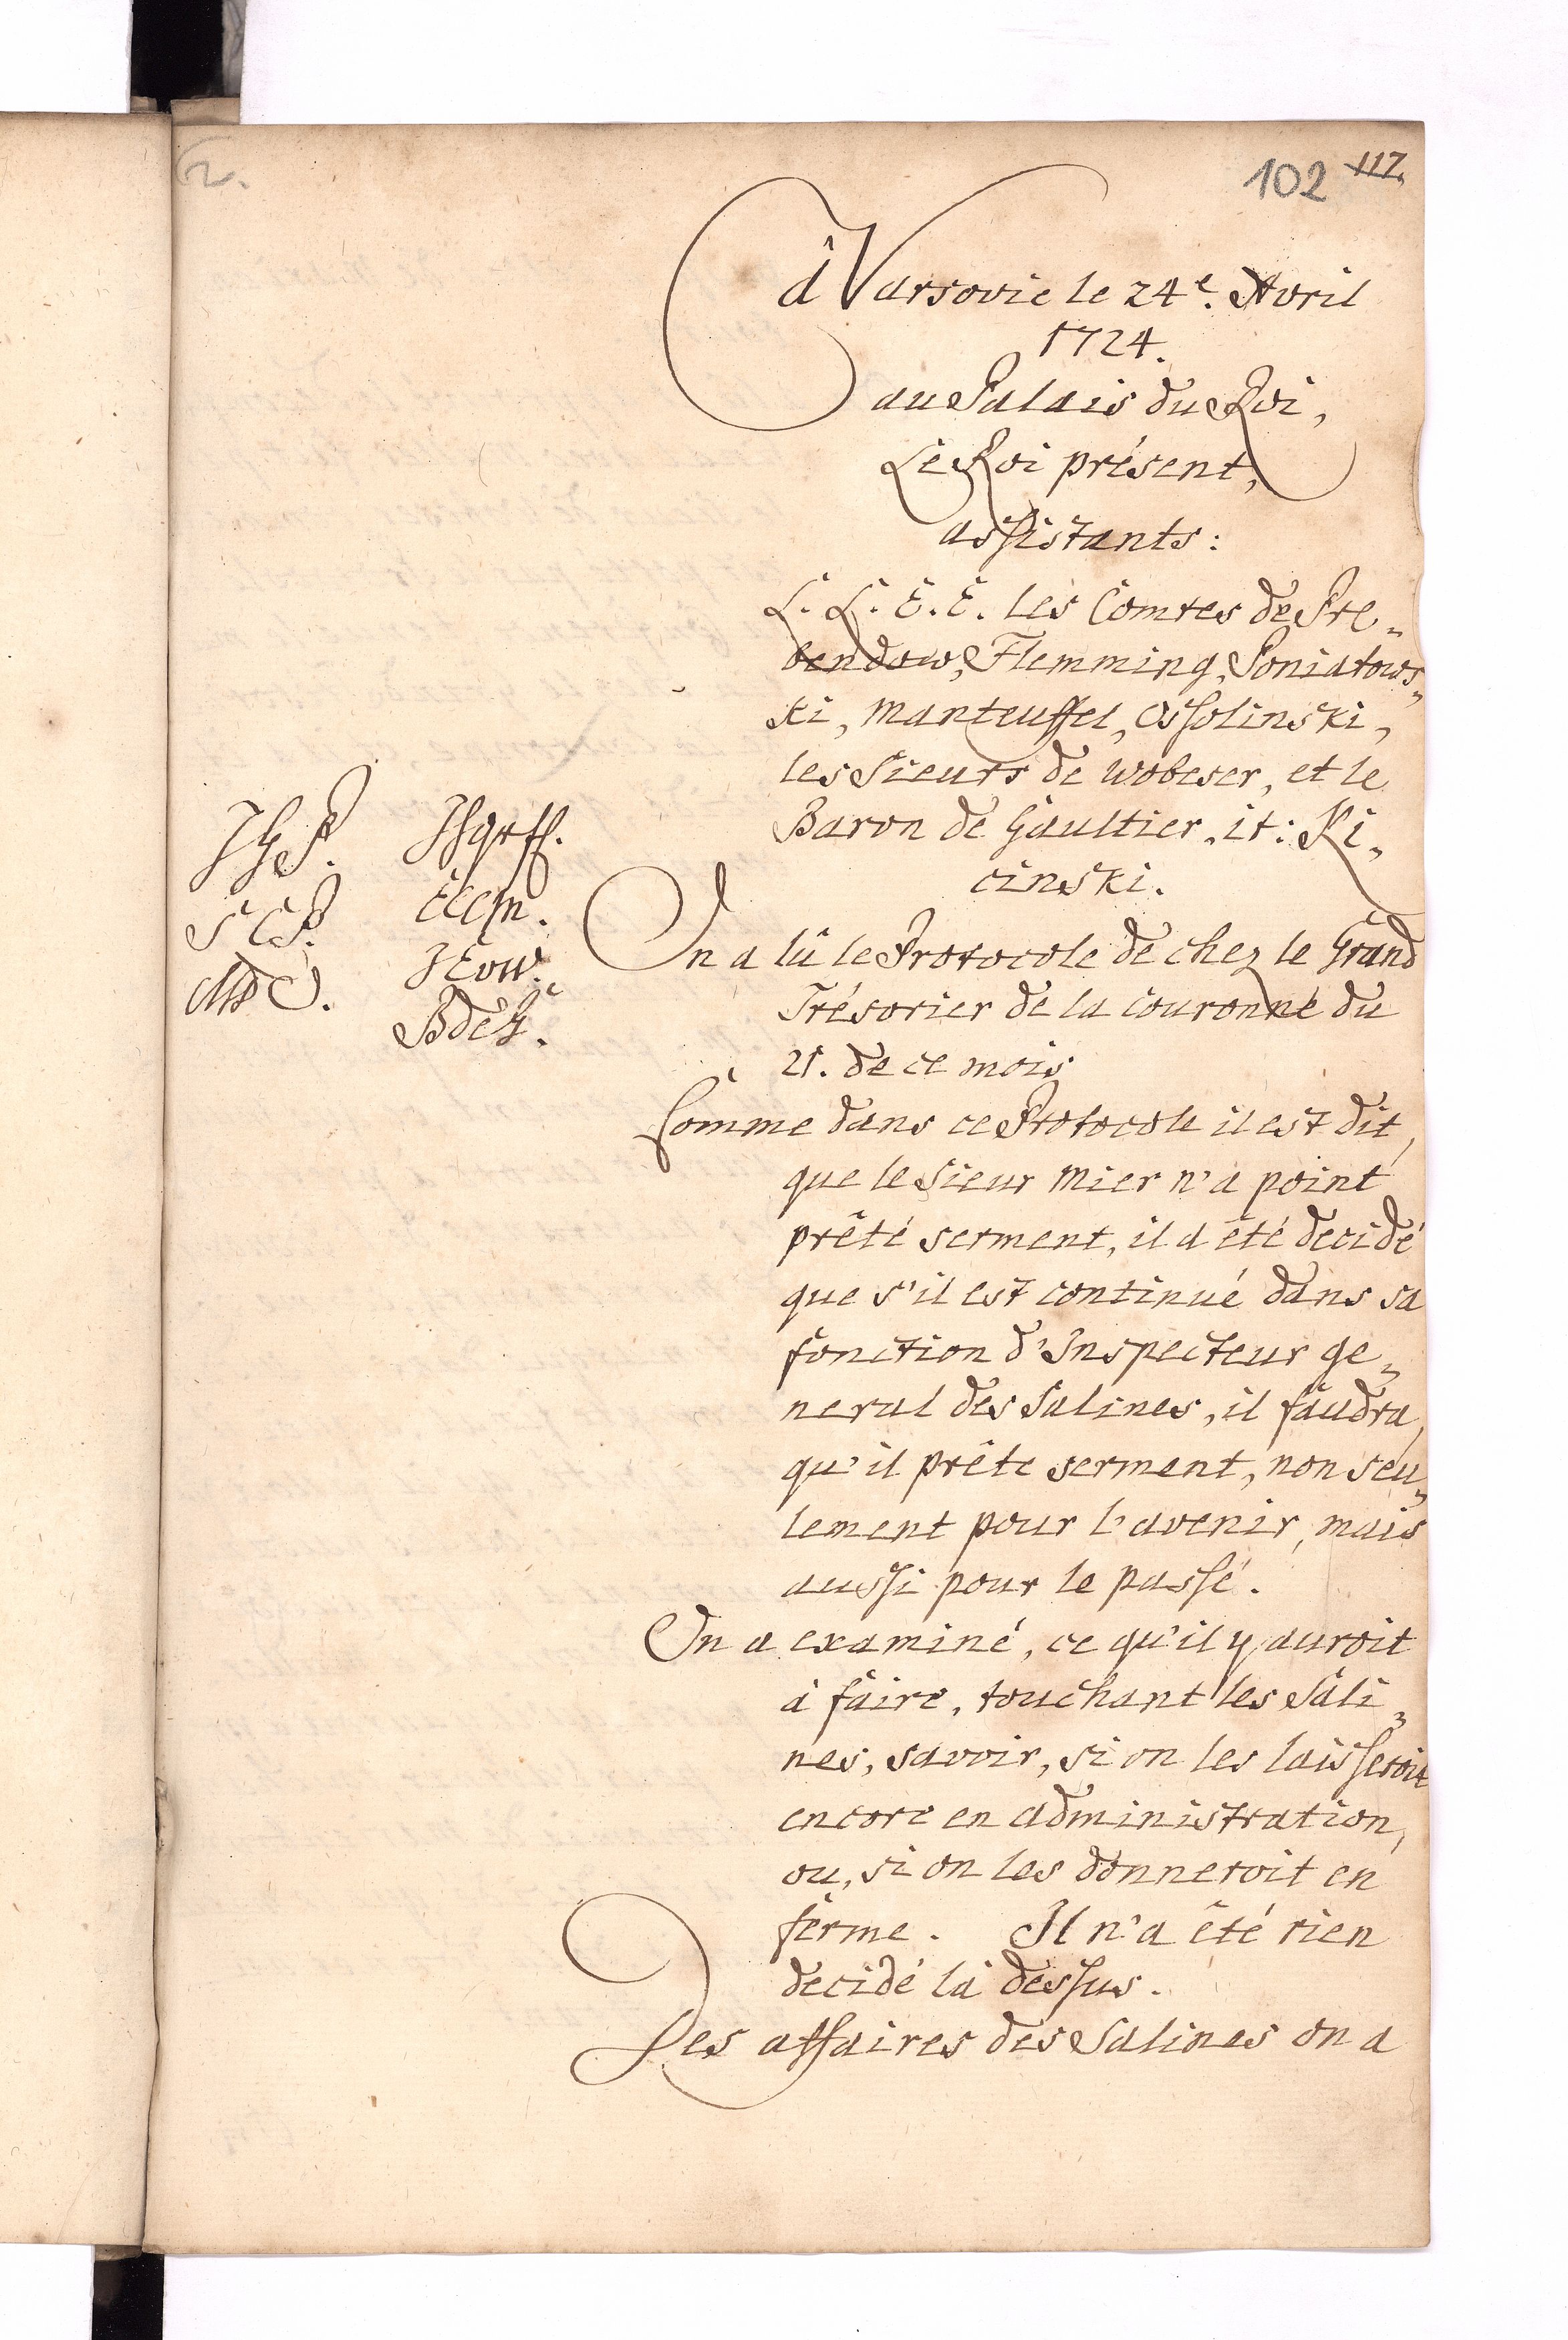 102 117.
à Varsovie le 24e. Avril
1724.
au Palais du Roi,
Le Roi présent,
assistants:
L. L. E. E. les Comtes de Pre-
bendow, Flemming, Poniatows-
ki, Manteuffel, Ossolinski,
les Sieurs de Wobeser, et le
Baron de Gaultier, it: Ki-
cinski.
On a lû le Protocole de chez le Grand
Trésorier de la couronne du
21. de ce mois
Comme dans ce Protocole il est dit,
que le Sieur Mier n'a point
prêté serment, il a été decidé
que s'il est continué dans sa
fonction d'Inspecteur ge-
neral des Salines, il faudra,
qu'il prête serment, non seu-
lement pour l'avenir, mais
aussi pour le passé.
On a examiné, ce qu'il y auroit
à faire, touchant les Sali-
nes, savoir, si on les laisseroit
encore en administration,
ou, si on les donneroit en
ferme. Il n'a été rien
decidé là dessus.
Des affaires des Salines on a